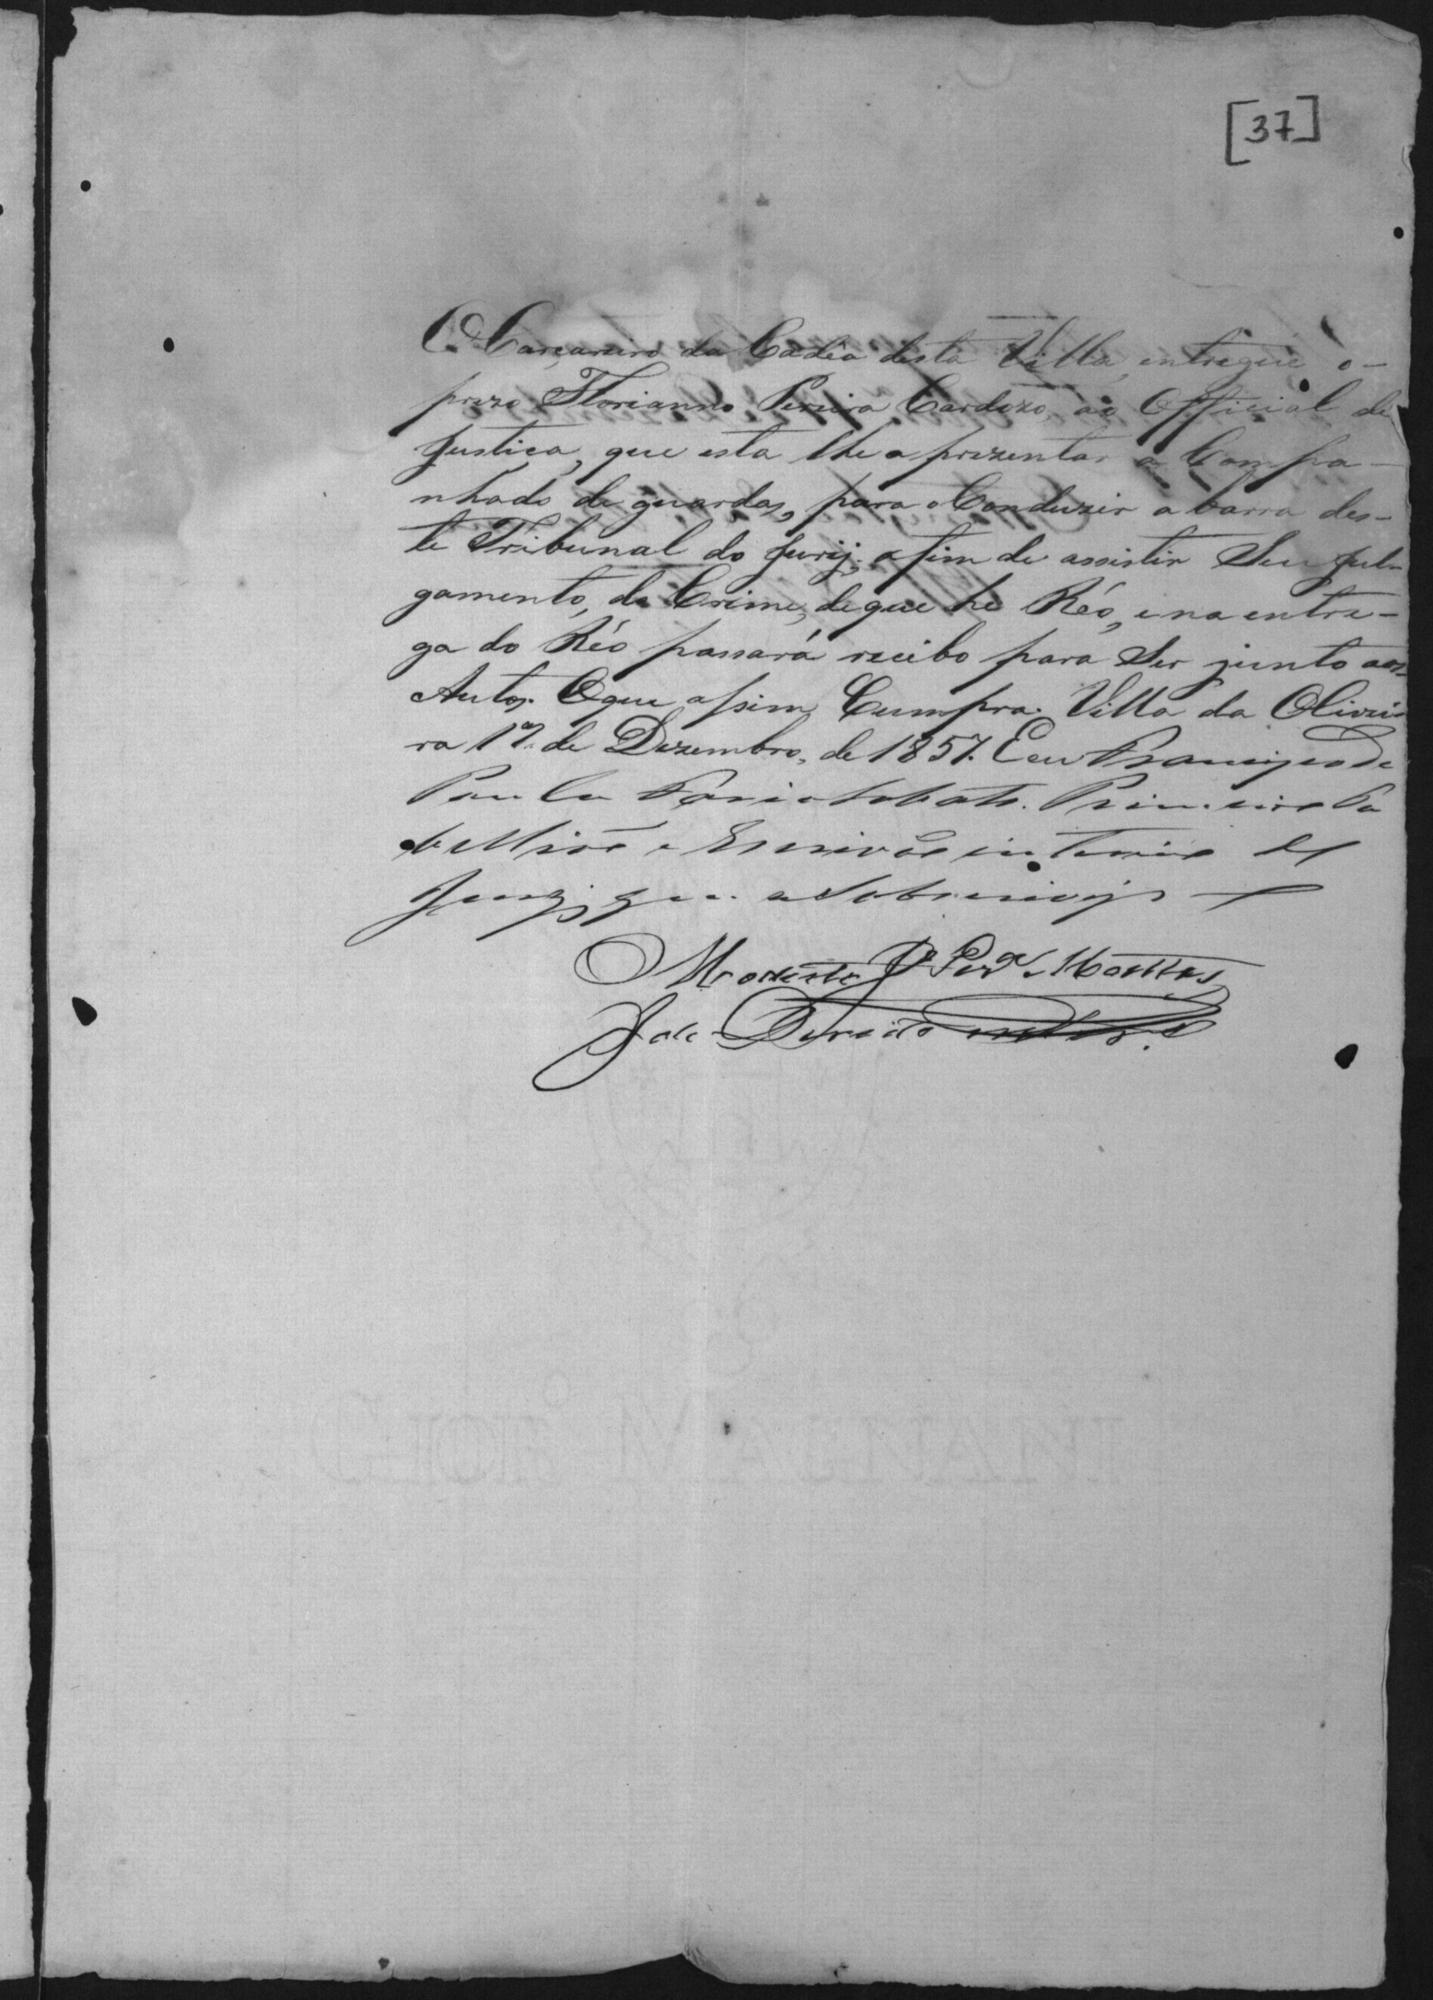 [37]
O Carçareiro da Cadêa desta Villa, entregue o-
prezo Florianno Pereira Cardozo, ao Official de
Justiça, que esta lhe aprezentar a Compa-
nhado de guardas, para o Conduzir a barra des-
te Tribunal do Jurÿ, afim de assistir Seu Jul-
gamento, do Crime, de que he Réo, e na entre-
ga do Réo passará recibo para Ser junto aos
Autos. O que assim Cumpra. Villa da Olivei-
ra 17 de Dezembro, de 1857. E eu Francisco de
Paula Primeiro Ta
bellião e Escrivão interino do
Jury que a Sobscrevy
Modesto